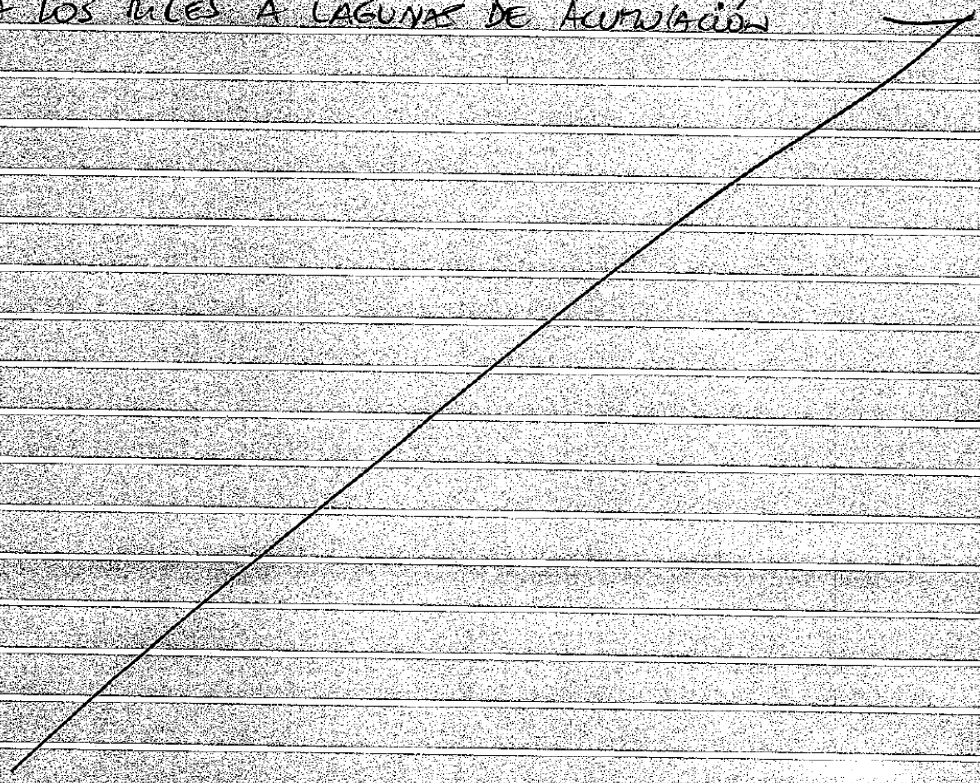 A LOS RILES A LAGUNAS DE ACUMULACIÓN